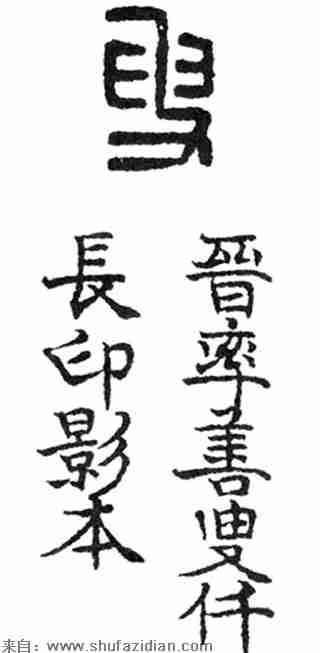 叟
晉率善叟仟
長印影本
来自：www.shufazidian.com